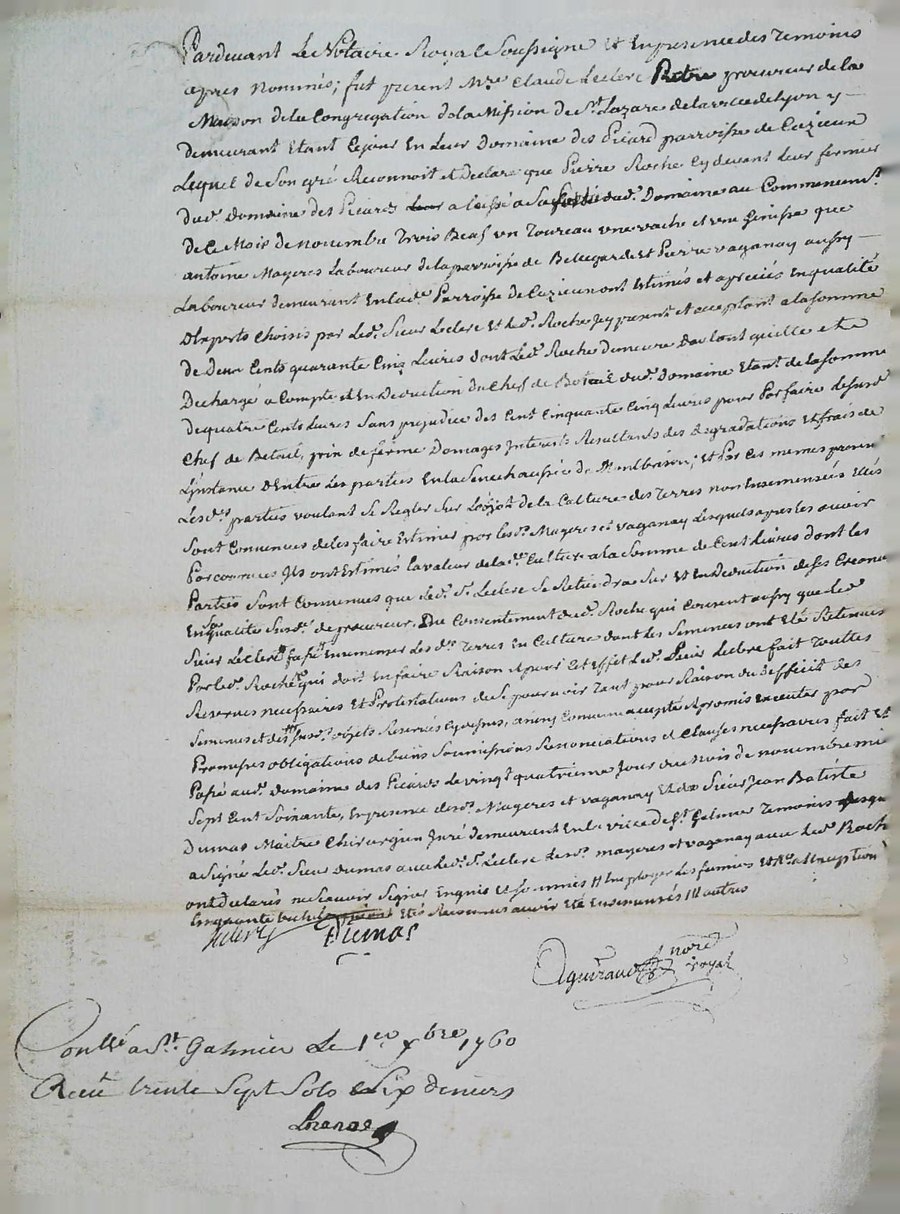 Pardevant Le Notaire Royal Soussigné Et En presence des Temoins
apres Nommés; fut present Mre Claude Leclerc Prêtre procureur de la
Maison dela Congregation dela Mission de St Lazare de la ville de Lyon y
demeurant Etant Cejour En Leur Domaine des Picard parroisse de Cuzieux
Lequel de Son gré Reconnoit et Declare que Pierre Roche Cy devant Leur fermier
dud. Domaine des Picards a laissé a Sa Sortie dud. Domaine au Commencemt
de Ce Mois de novembre Trois Beafs un Toureau une vache et une Genisse que
antoine Mayeres Laboureur de la parroisse de Bellegarde et Pierre vaganay aussy
Laboureur demeurant En lad. Parroisse de Cuzieu ont Estimés et apreciés En qualité
D'Experts Choisis par Led. Sieur Leclerc Et led. Roche Icy present et acceptant a la Somme
de Deux Cents quarante Cinq Livres dont Led. Roche Demeure Dautant quille et
Dechargé a Compte et En Deduction du Chef de Betail dud. Domaine Etant de la Somme
de quatre Cents Livres Sans prejudice des Cent Cinquante Cinq Livres pour Parfaire led
Chef de Betail, prix de ferme Domages Interets Resultants des degradations Et frais de
L'instance D'Entre Les parties En la Senechaussée de Montbrison; Et Par Ces memes presen
Lesd. parties voulant Se Regler Sur de la Culture des Terres non Ensemensées Elles
Sont Convenues de les faire Estimer par lesd. Mayeres et vaganay Lesquels apres les avoir
Parcourues Ils ont Estimés la valeur de lad. Culture a la Somme de Cent Livres dont les
Parties Sont Convenues que Led. Sr Leclerc Se Retiendra Sur Et En Deduction de Ses Creances
En qualité Susd. de procureur. Du Consentement dud. Roche qui Consent aussy que Le
Sieur Leclerc fasse Ensemencer Les d. Terres En Culture dont les Semences ont Eté Retenues
Par led. Roche qui doit En faire Raison Et pour Cet Effet Led. Sieur Leclerc fait Toutes
Reserves necessaires Et Protestations de Se pourvoir Tant pour Raison du Defficit des
Semences et des Susd. objets Reservés Cy dessus, ainsy Convenu accepté et promis Executer par
Promesses obligations de biens Soumissions Renonciations et Clauses necessaires fait Et
Passé aud. Domaine des Picards Le vingt quatrieme Jour du mois de novembre mil
Sept Cent Soixante, En presence desd. Mayeres et vaganay Et de Sieur Jean Batiste
Dumas Maitre Chirurgien Juré demeurant En la ville de St Galmier Temoins Lesquels
a Signé Led. Sieur Dumas avec led. Sr Leclerc Lesd. mayeres et vaganay avec led. Roche
ont Declarés ne Scavoir Signer Enquis et Sommés # Employer Les fumiers Et
Cinquante Etés avoir Eté Ensemensés ## autres
Leclerc Dumas
Aguiraud nore
royal
Conllé a St Galmier Le 1er xbre 1760
Recu trente Sept Sols Six deniers